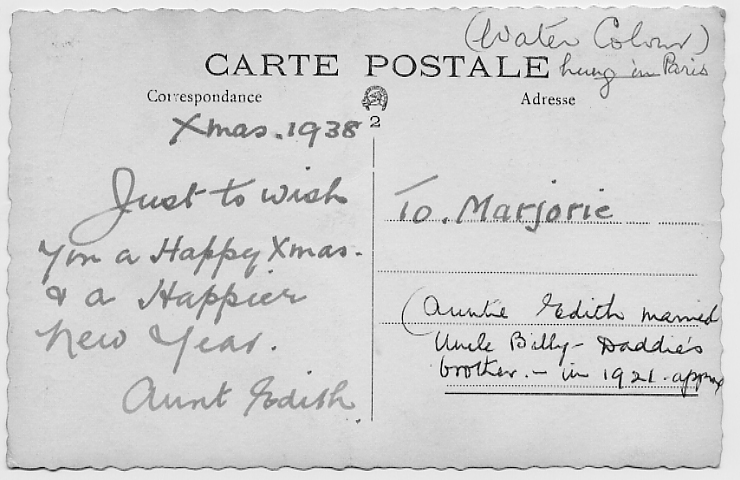 (Water Colour)
hung in Paris
CARTE POSTALE
Correspondance
Adresse
2
Xmas. 1938
Just to wish
you a Happy Xmas.
& a Happier
New Year.
Aunt Edith
To. Marjorie
(Auntie Edith married
Uncle Billy - Daddie's
brother. - in 1921. approx